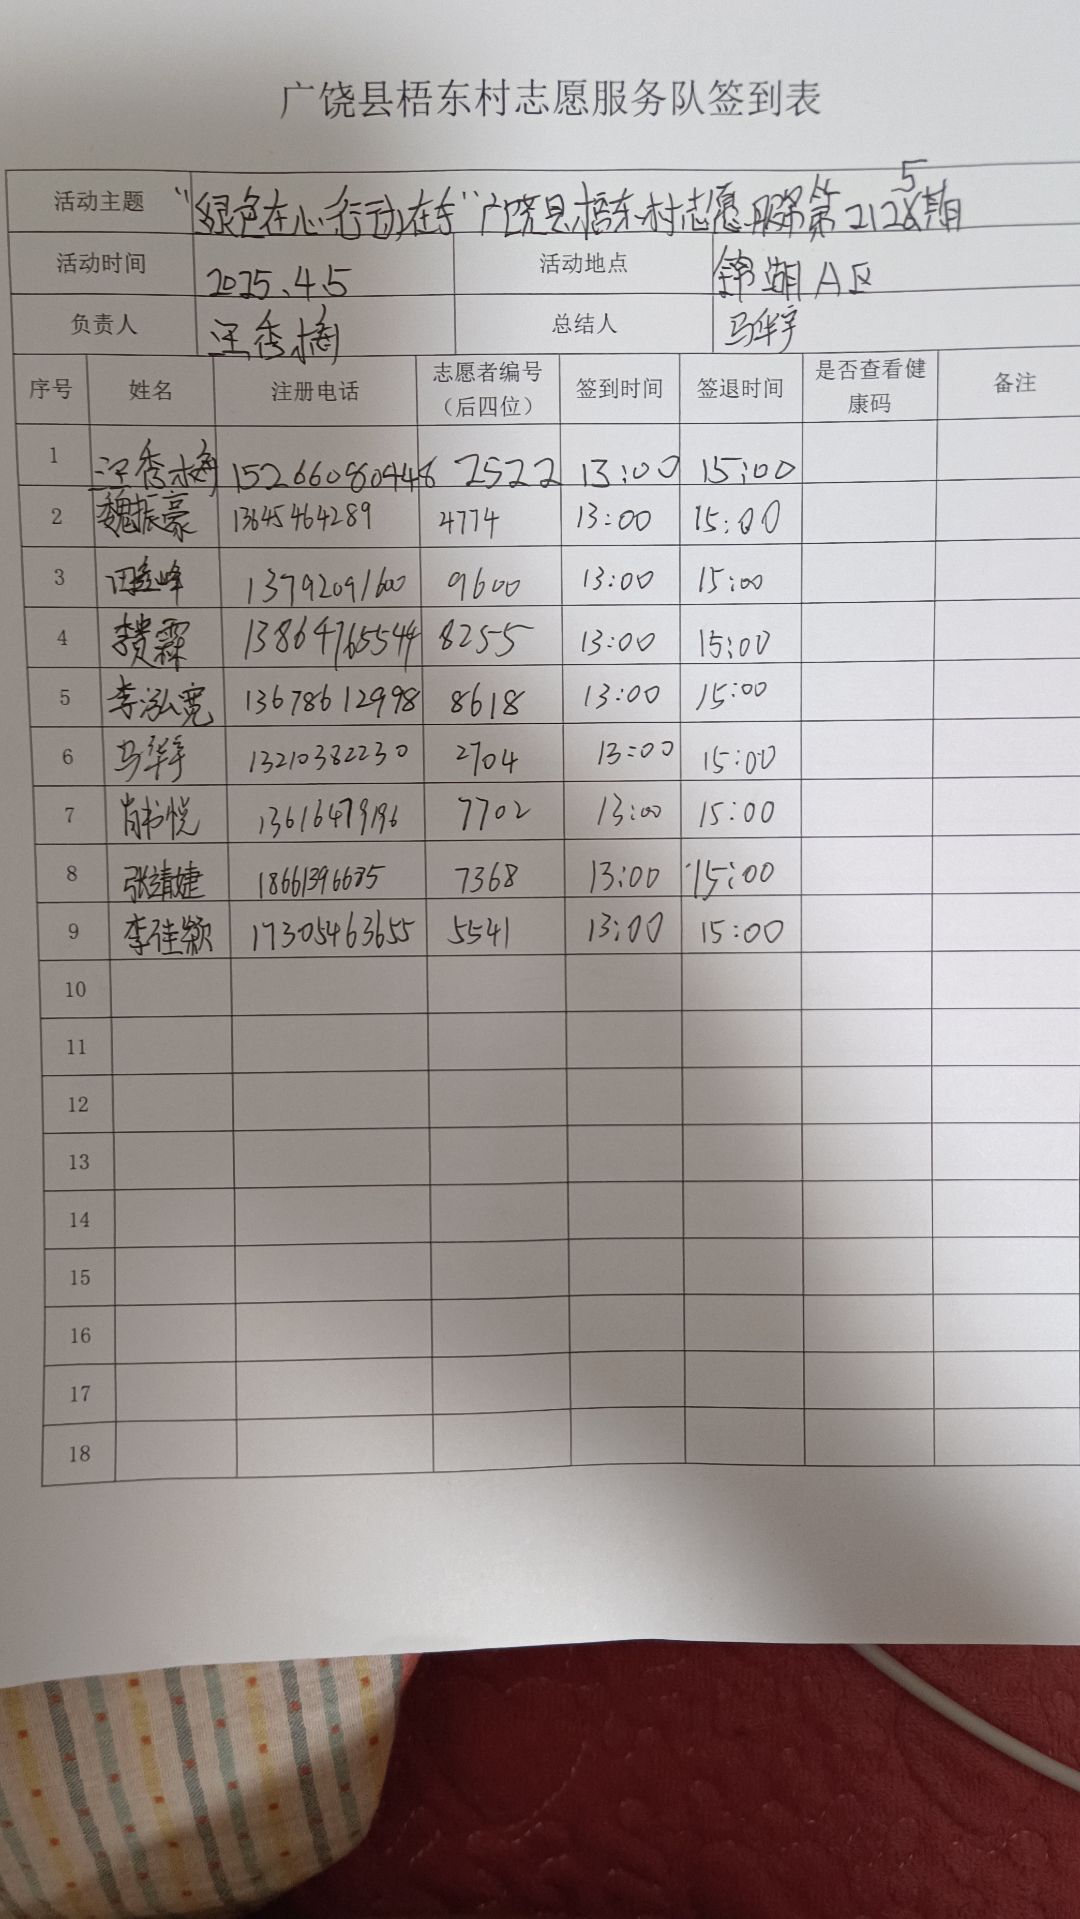 广饶县梧东村志愿服务队签到表
活动主题 "绿色在心行动在手"广饶县梧东村志愿服务第2125期
活动时间 2025.4.5 活动地点 锦湖A区
负责人 汪秀梅 总结人 马华宇
序号 姓名 注册电话 志愿者编号（后四位） 签到时间 签退时间 是否查看健康码 备注
1 汪秀梅 15266080446 2522 13:00 15:00
2 魏振豪 13645464289 4774 13:00 15:00
3 13792091600 9600 13:00 15:00
4 李贵霖 13864765544 8255 13:00 15:00
5 李泓宽 13678612998 8618 13:00 15:00
6 马华宇 13210382230 2704 13:00 15:00
7 肖书悦 13616479196 7702 13:00 15:00
8 张靖婕 18661396635 7368 13:00 15:00
9 李佳颖 17305463655 5541 13:00 15:00
10
11
12
13
14
15
16
17
18